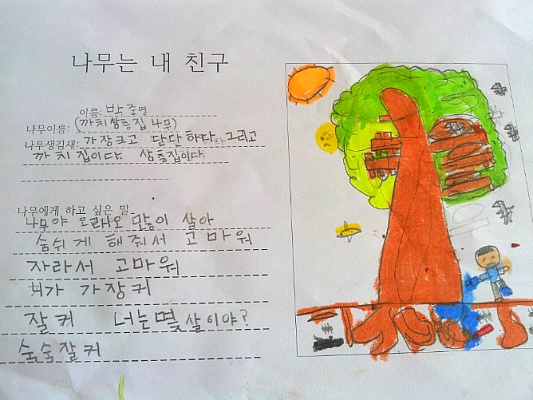 나무는 내 친구
이름: 박준영
나무이름: (까치삼층집 나무)
나무생김새: 가장크고 단단하다. 그리고
까치집이다. 삼층집이다
나무에게 하고 싶은 말
나무야 오래사오 많이 살아
숨쉬게 해줘서 고마워
자라서 고마워
니가 가장커
잘커 너는몇살이야?
쑥쑥잘커